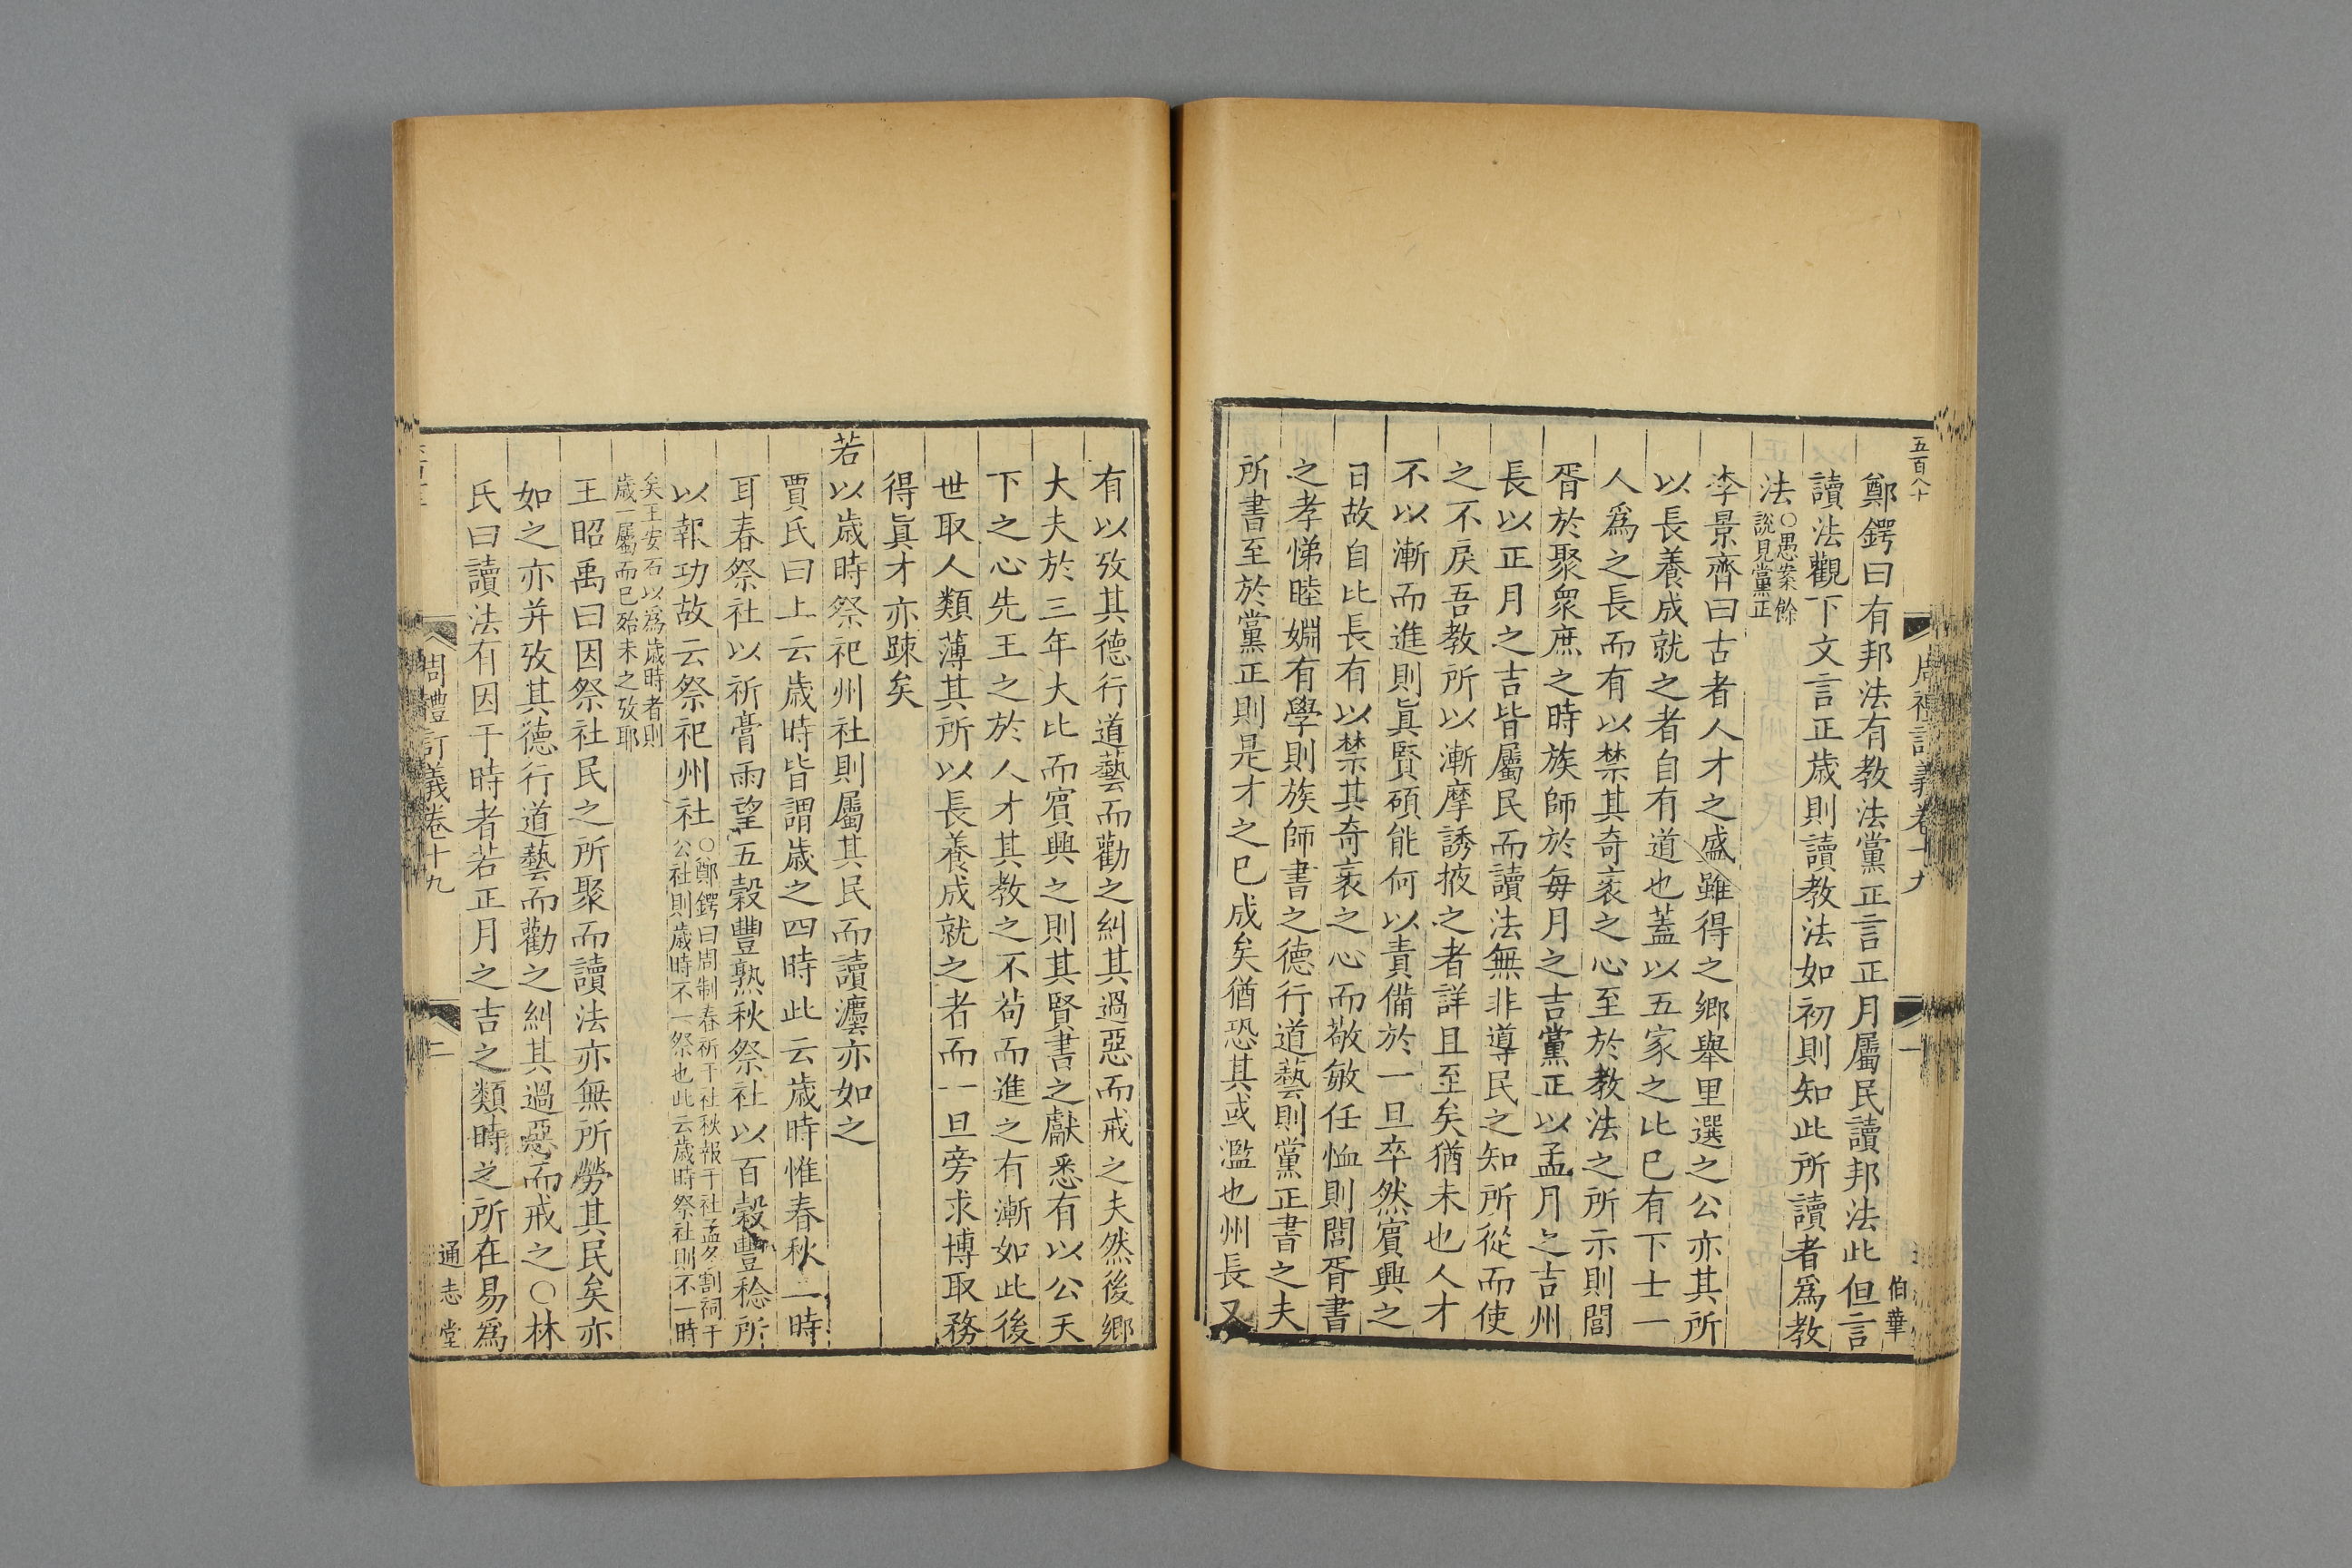 五百八十
周禮訂義卷十九
一
伯華
鄭鍔曰有邦法有教法黨正言正月屬民讀邦法此但言
讀法觀下文言正歳則讀教法如初則知此所讀者爲教
法
○愚案餘
説見黨正
李景齊曰古者人才之盛雖得之鄉舉里選之公亦其所
以長養成就之者自有道也蓋以五家之比已有下士一
人爲之長而有以禁其奇衺之心至於教法之所示則閭
胥於聚衆庶之時族師於每月之吉黨正以孟月之吉州
長以正月之吉皆屬民而讀法無非導民之知所從而使
之不戾吾教所以漸摩誘掖之者詳且至矣猶未也人才
不以漸而進則眞賢碩能何以責備於一旦卒然賓興之
日故自比長有以禁其奇衺之心而敬敏任恤則閭胥書
之孝悌睦婣有學則族師書之德行道藝則黨正書之夫
所書至於黨正則是才之已成矣猶恐其或濫也州長又
有以攷其德行道藝而勸之糾其過惡而戒之夫然後鄉
大夫於三年大比而賓興之則其賢書之獻悉有以公天
下之心先王之於人才其教之不茍而進之有漸如此後
世取人類薄其所以長養成就之者而一旦旁求博取務
得眞才亦踈矣
若以歳時祭祀州社則屬其民而讀灋亦如之
賈氏曰上云歳時皆謂歳之四時此云歳時惟春秋二時
耳春祭社以祈膏雨望五穀豐熟秋祭社以百穀豐稔所
以報功故云祭祀州社
○鄭鍔曰周制春祈于社秋報于社孟冬割祠于
公社則歳時不一祭也此云歳時祭社則不一時
矣王安石以爲歳時者則
歳一屬而已殆未之攷耶
王昭禹曰因祭社民之所聚而讀法亦無所勞其民矣亦
如之亦并攷其德行道藝而勸之糾其過惡而戒之○林
氏曰讀法有因于時者若正月之吉之類時之所在易爲
周禮訂義卷十九
二
通志堂